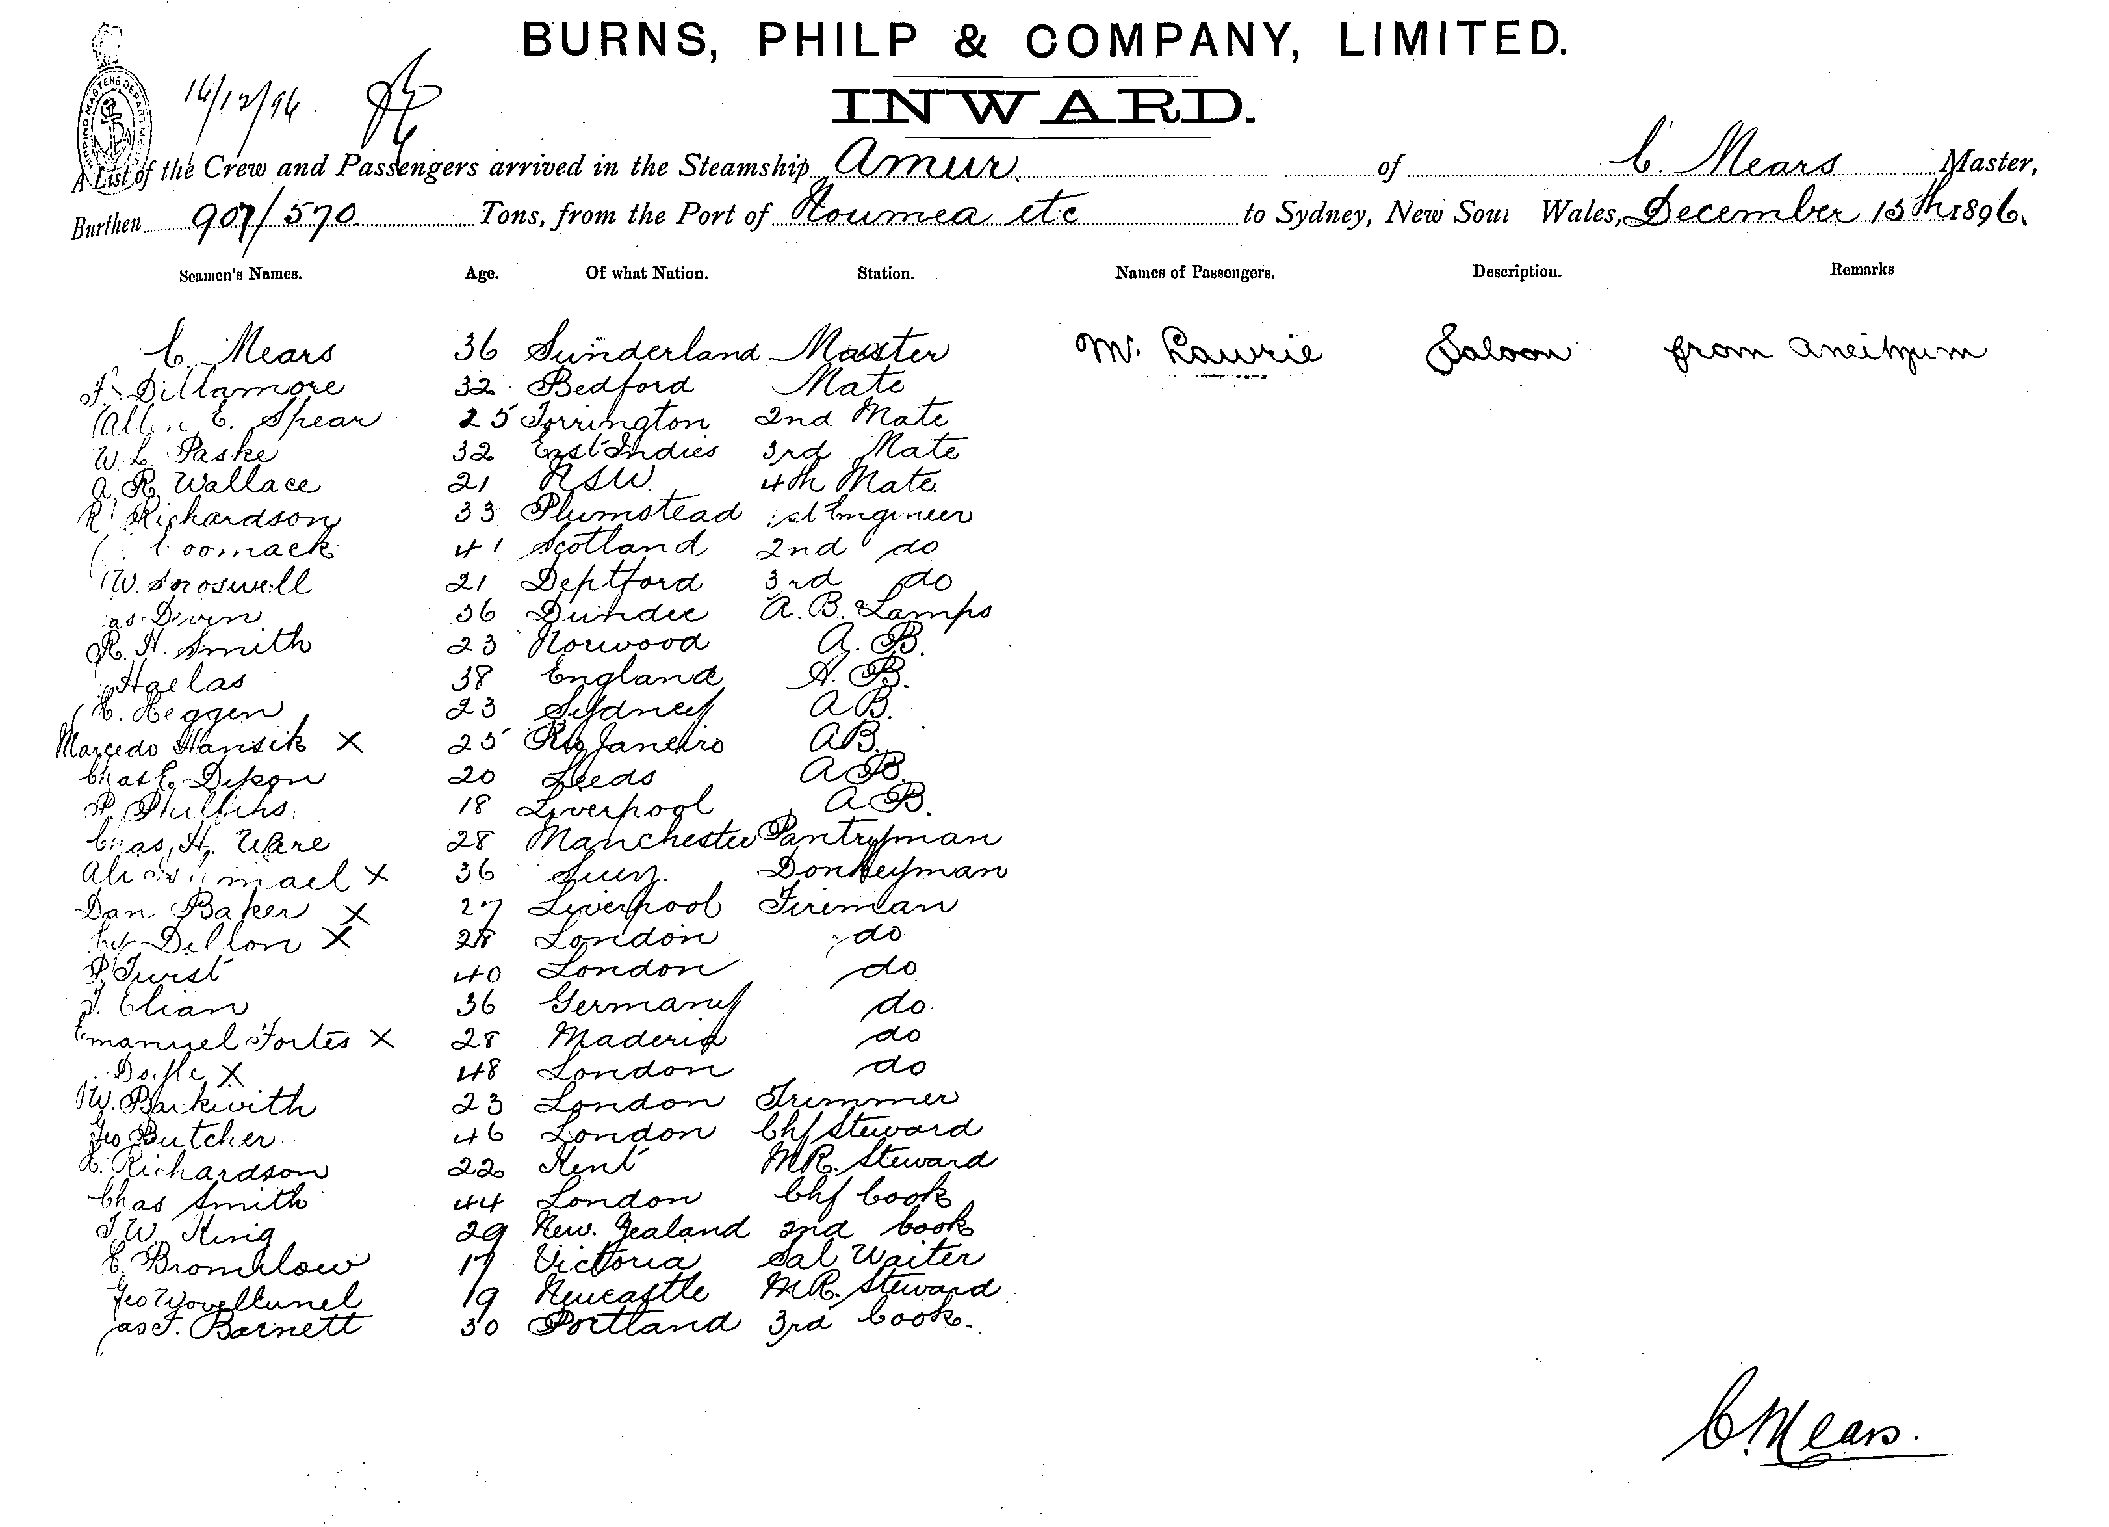 BURNS, PHILP & COMPANY, LIMITED.
INWARD.
16/12/96
A List of the Crew and Passengers arrived in the Steamship Amur of C. Mears Master,
Burthen 907/570 Tons, from the Port of Noumea etc to Sydney, New Sou Wales, December 15th 1896.
Seamen's Names. Age. Of what Nation. Station. Names of Passengers. Description. Remarks
C. Mears 36 Sunderland Master Mr. Lawrie Saloon from Aneityum
F. Dillamore 32 Bedford Mate
Allen E. Spear 25 Torrington 2nd Mate
W. L. Paske 32 East Indies 3rd Mate
A. R. Wallace 21 NSW. 4th Mate
R. Richardson 33 Plumstead 1st Engineer
41 Scotland 2nd do
W. Snoswell 21 Deptford 3rd do
36 Dundee A. B. Lamps
R. H. Smith 23 Norwood A. B.
Haelas 38 England A. B.
H. Heggen 23 Sydney A B.
Marcedo Hansik X 25 Rio Janeiro AB.
Chas E. Dixon 20 Leeds A B.
P. Phillips 18 Liverpool A B.
Chas. H. Ware 28 Manchester Pantryman
Ali X 36 Suez. Donkeyman
Dan Baker X 27 Liverpool Fireman
Dillon X 28 London do
P. Furst 40 London do
J. Elian 36 Germany do.
Emanuel Fortes X 28 Maderia do
Doyle X 48 London do
W. Barkwith 23 London Trimmer
Geo Butcher 46 London Chf Steward
H. Richardson 22 Kent M.R. Steward
Chas Smith 44 London Chf Cook
J. W. King 29 New. Zealand 2nd Cook
C. Bromilow 17 Victoria Sal Waiter
Geo 19 Newcastle M.R. Steward
Jas F. Barnett 30 Portland 3rd Cook.
C. Mears.